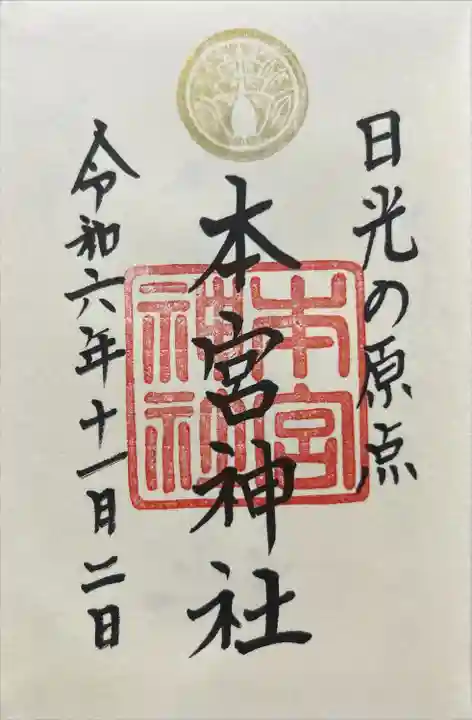 日光の原点
本宮神社
本宮
神社
令和六年十一月二日